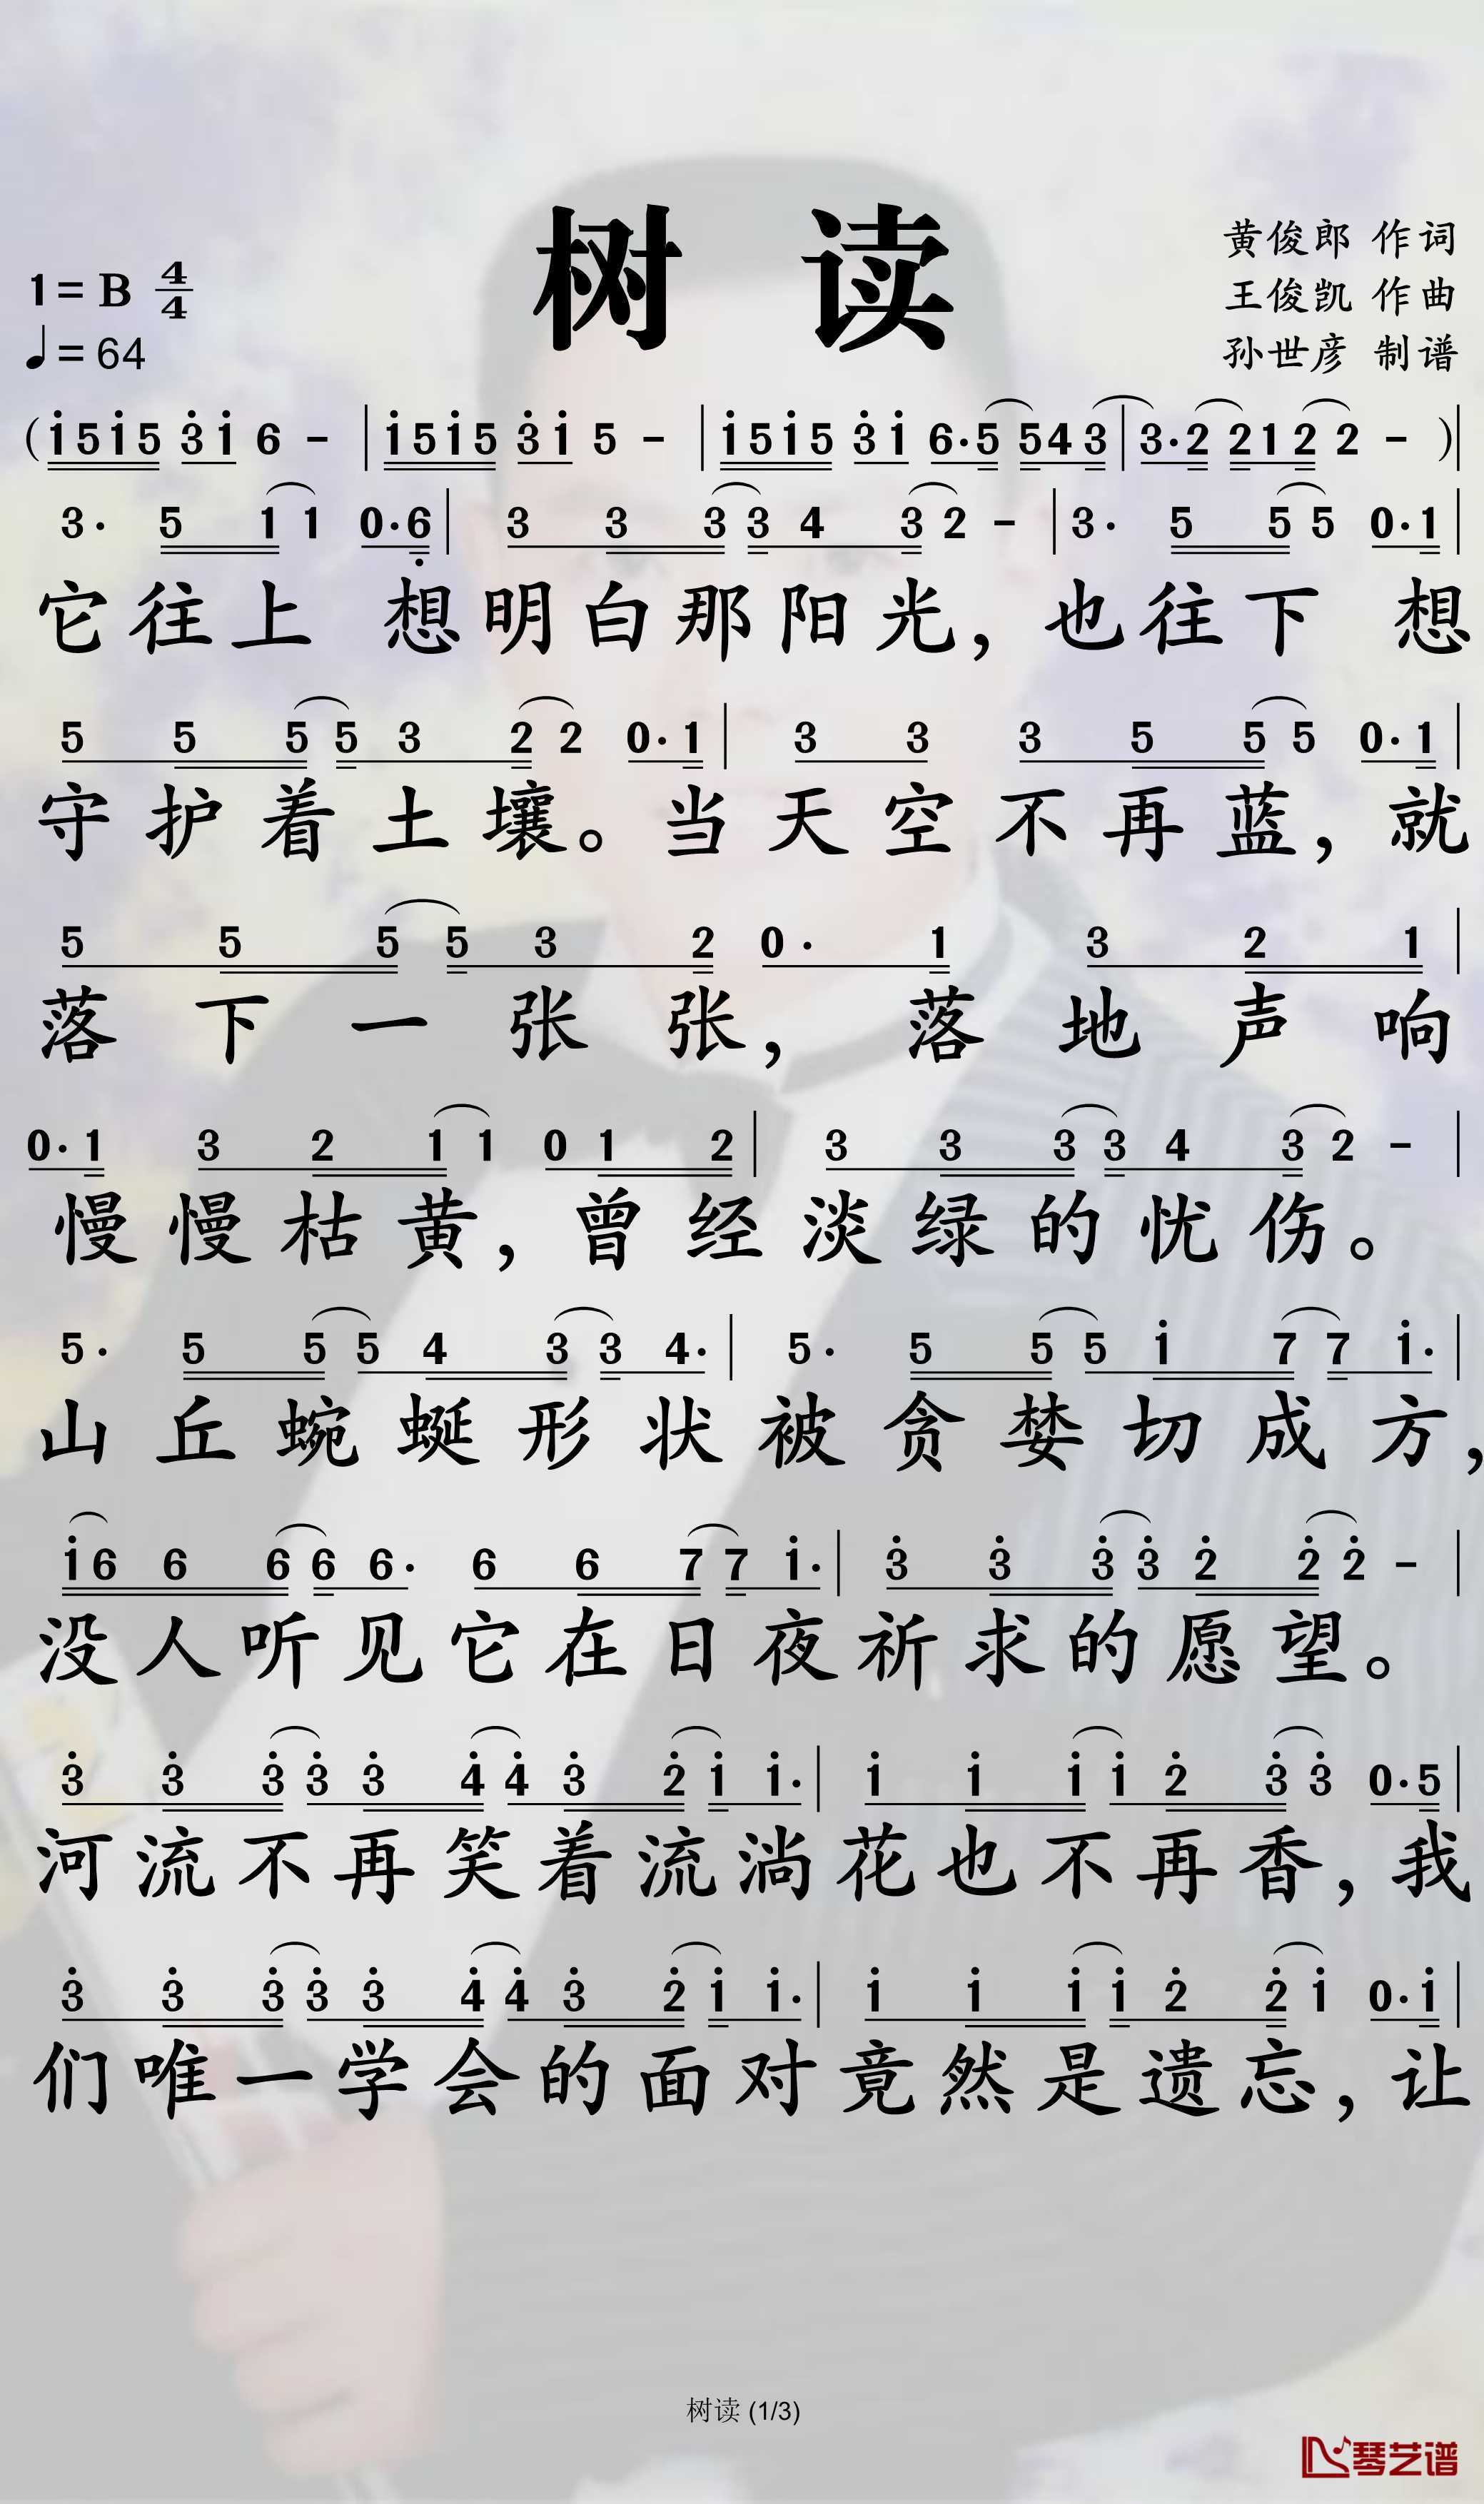 树 读
黄俊郎 作词
王俊凯 作曲
孙世彦 制谱
1= B 4/4
♩= 64
( i 5 i 5 3 i 6 - | i 5 i 5 3 i 5 - | i 5 i 5 3 i 6· 5 5 4 3 | 3· 2 2 1 2 2 - ) |
3· 5 1 1 0· 6 | 3 3 3 3 4 3 2 - | 3· 5 5 5 0· 1 |
它往上 想明白那阳光, 也往下 想
5 5 5 5 3 2 2 0· 1 | 3 3 3 5 5 5 0· 1 |
守护着土壤。当天空不再蓝, 就
5 5 5 5 3 2 0· 1 3 2 1 |
落下一张张, 落地声响
0· 1 3 2 1 1 0 1 2 | 3 3 3 3 4 3 2 - |
慢慢枯黄, 曾经淡绿的忧伤。
5· 5 5 5 4 3 3 4· | 5· 5 5 5 i 7 7 i· |
山丘蜿蜒形状被贪婪切成方,
i 6 6 6 6 6· 6 6 7 7 i· | 3 3 3 3 2 2 2 - |
没人听见它在日夜祈求的愿望。
3 3 3 3 3 4 4 3 2 i i· | i i i i 2 3 3 0· 5 |
河流不再笑着流淌花也不再香, 我
3 3 3 3 3 4 4 3 2 i i· | i i i i 2 2 i 0· i |
们唯一学会的面对竟然是遗忘, 让
树读 (1/3)
琴艺谱